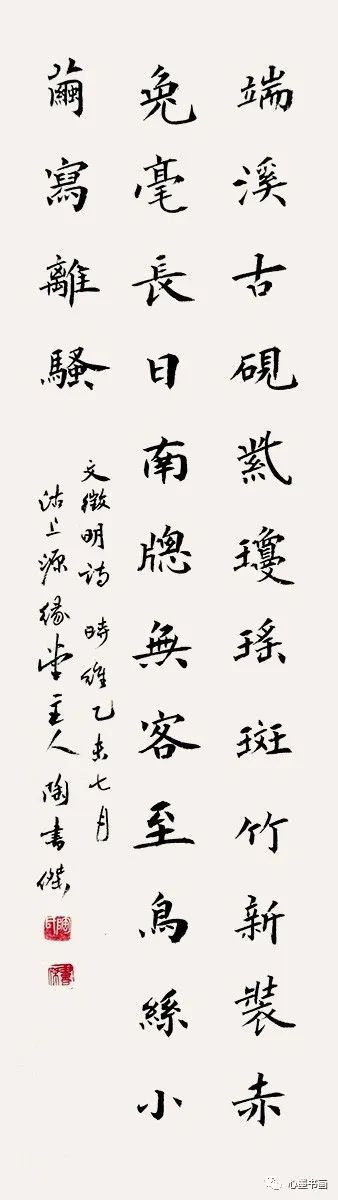 端溪古硯紫瓊瑤斑竹新裝赤
兔毫長日南牕無客至烏絲小
繭寫離騷
文徵明詩 時維乙未七月
沽上源緣堂主人陶書傑
心墨书画